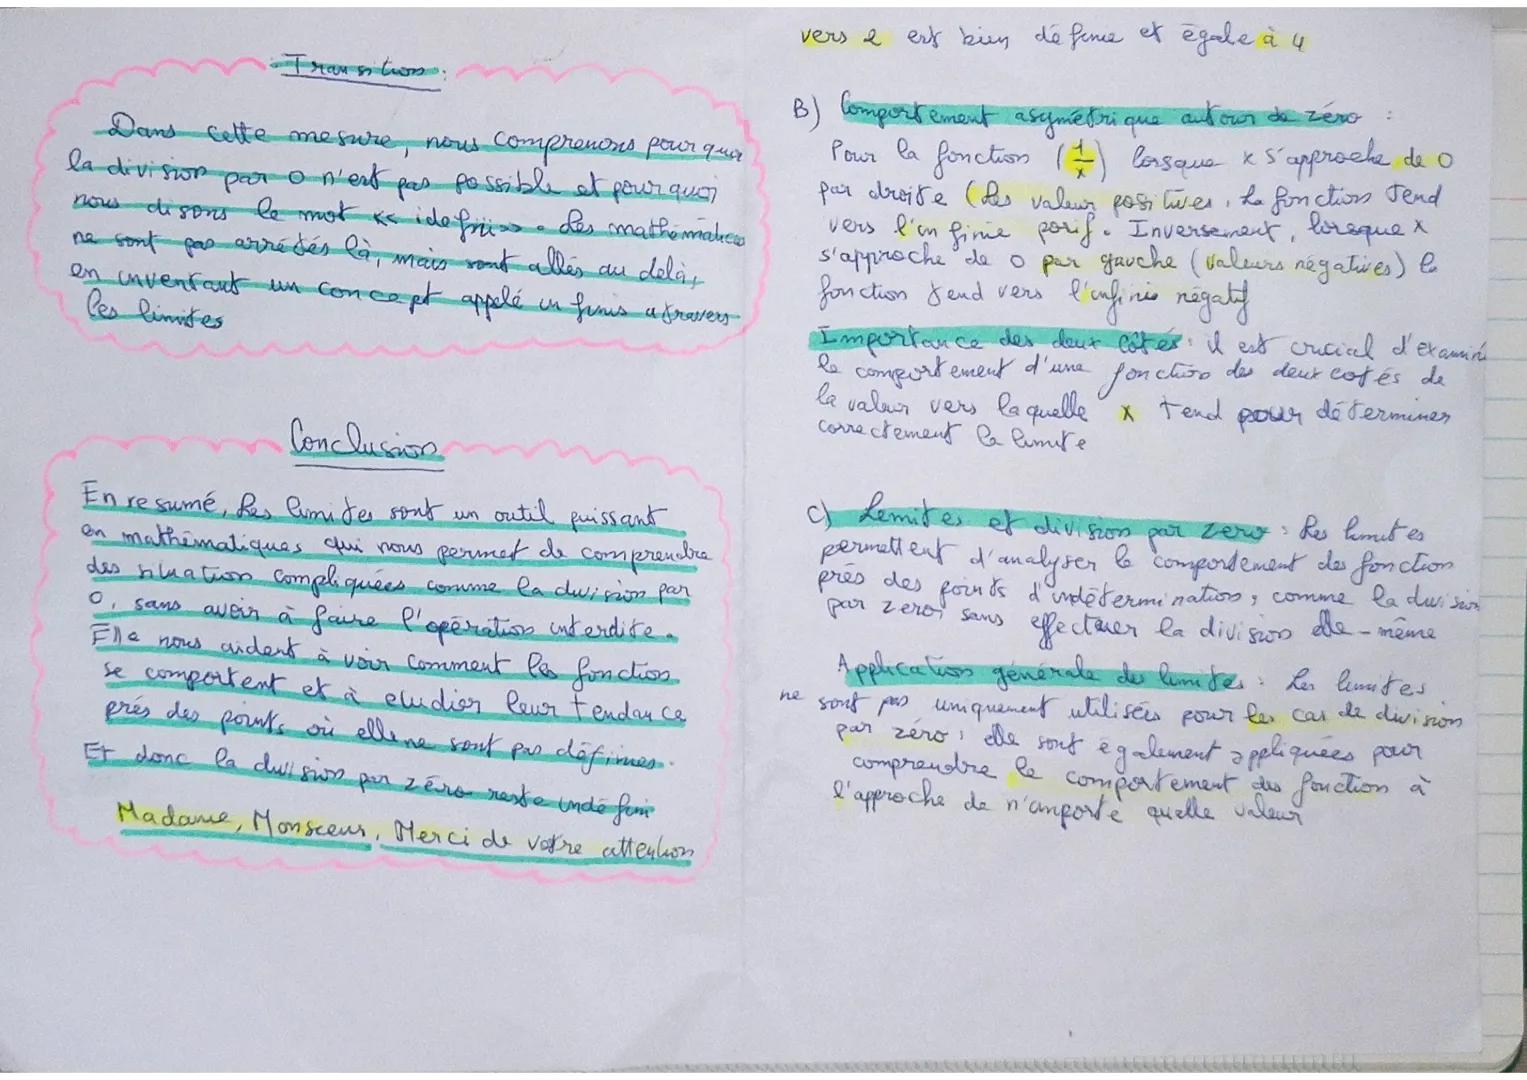 Transition :
Dans cette mesure, nous comprenons pourquoi
la division par 0 n'est pas possible et pourquoi
nous disons le mot << idefini>>. Les mathématices
ne sont pas arrétés là, mais sont allés au delà,
en inventant un concept appelé infinis atravers
les limites
Conclusion
En resumé, les limites sont un outil puissant
en mathématiques qui nous permet de comprendre
des situation compliquées comme la division par
0, sans avoir à faire l'opération interdite.
Elle nous aident à voir comment les fonction
se comportent et à etudier leur tendance
près des points où elle ne sont pas définies.
Et donc la division par zéro reste indéfini
Madame, Monsieur, Merci de votre attention
vers 2 est bien définie et égale à 4
B) Comportement asymétrique autour de zéro :
Pour la fonction (1/x) lorsque x s'approche de 0
par droite (les valeur positives, la fonction tend
vers l'infinie posif. Inversement, lorsque x
s'approche de 0 par gauche (valeurs négatives) la
fonction tend vers l'infinie négatif
Importance des deux côtés : il est crucial d'examiné
le comportement d'une fonction des deux cotés de
la valeur vers laquelle x tend pour déterminer
correctement la limite
C) Limites et division par zero : Les limites
permettent d'analyser le comportement des fonction
près des points d'indétermination, comme la division
par zero, sans effectuer la division elle-même
Application générale des limites : Les limites
ne sont pas uniquement utilisées pour les cas de division
par zéro, elle sont également appliquées pour
comprendre le comportement des fonction à
l'approche de n'importe quelle valeur